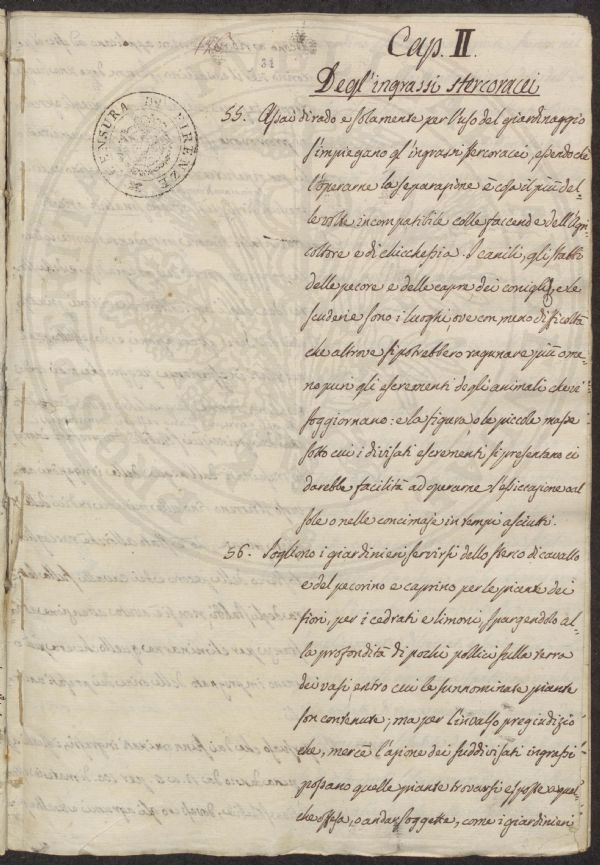 126
31
Cap. II.
Degl'ingrassi stercoracei
CENSURA DI FIRENZE
55. Assai di rado e solamente per l'uso del giardinaggio
s'impiegano gl'ingrassi stercoracei, essendo chè
l'operarne la separazione è cosa il più del-
le volte incompatibile colle faccende dell'Agri-
coltore e di chicchessia. I canili, gli stabbi
delle pecore e delle capre dei conigli, e le
scuderie sono i luoghi, ove con meno difficoltà
che altrove si potrebbero ragunare più o me-
no puri gli escrementi degli animali che vi
soggiornano: e la figura, o le piccole masse
sotto cui i divisati escrementi si presentano ci
darebbe facilità ad operarne l'essiccazione al
sole o nelle concimaje in tempi asciutti.
56. Sogliono i giardinieri servirsi dello sterco di cavallo
e del pecorino e caprino per le piante dei
fiori, per i cedrati e limoni, spargendolo al-
la profondità di pochi pollici sulla terra
dei vasi entro cui le sunnominate piante
son contenute; ma per l'invalso pregiudizio
che, mercè l'azione dei suddivisati ingrassi
possano quelle piante trovarsi esposte a qual-
che offesa, o andar soggette, come i giardinieri